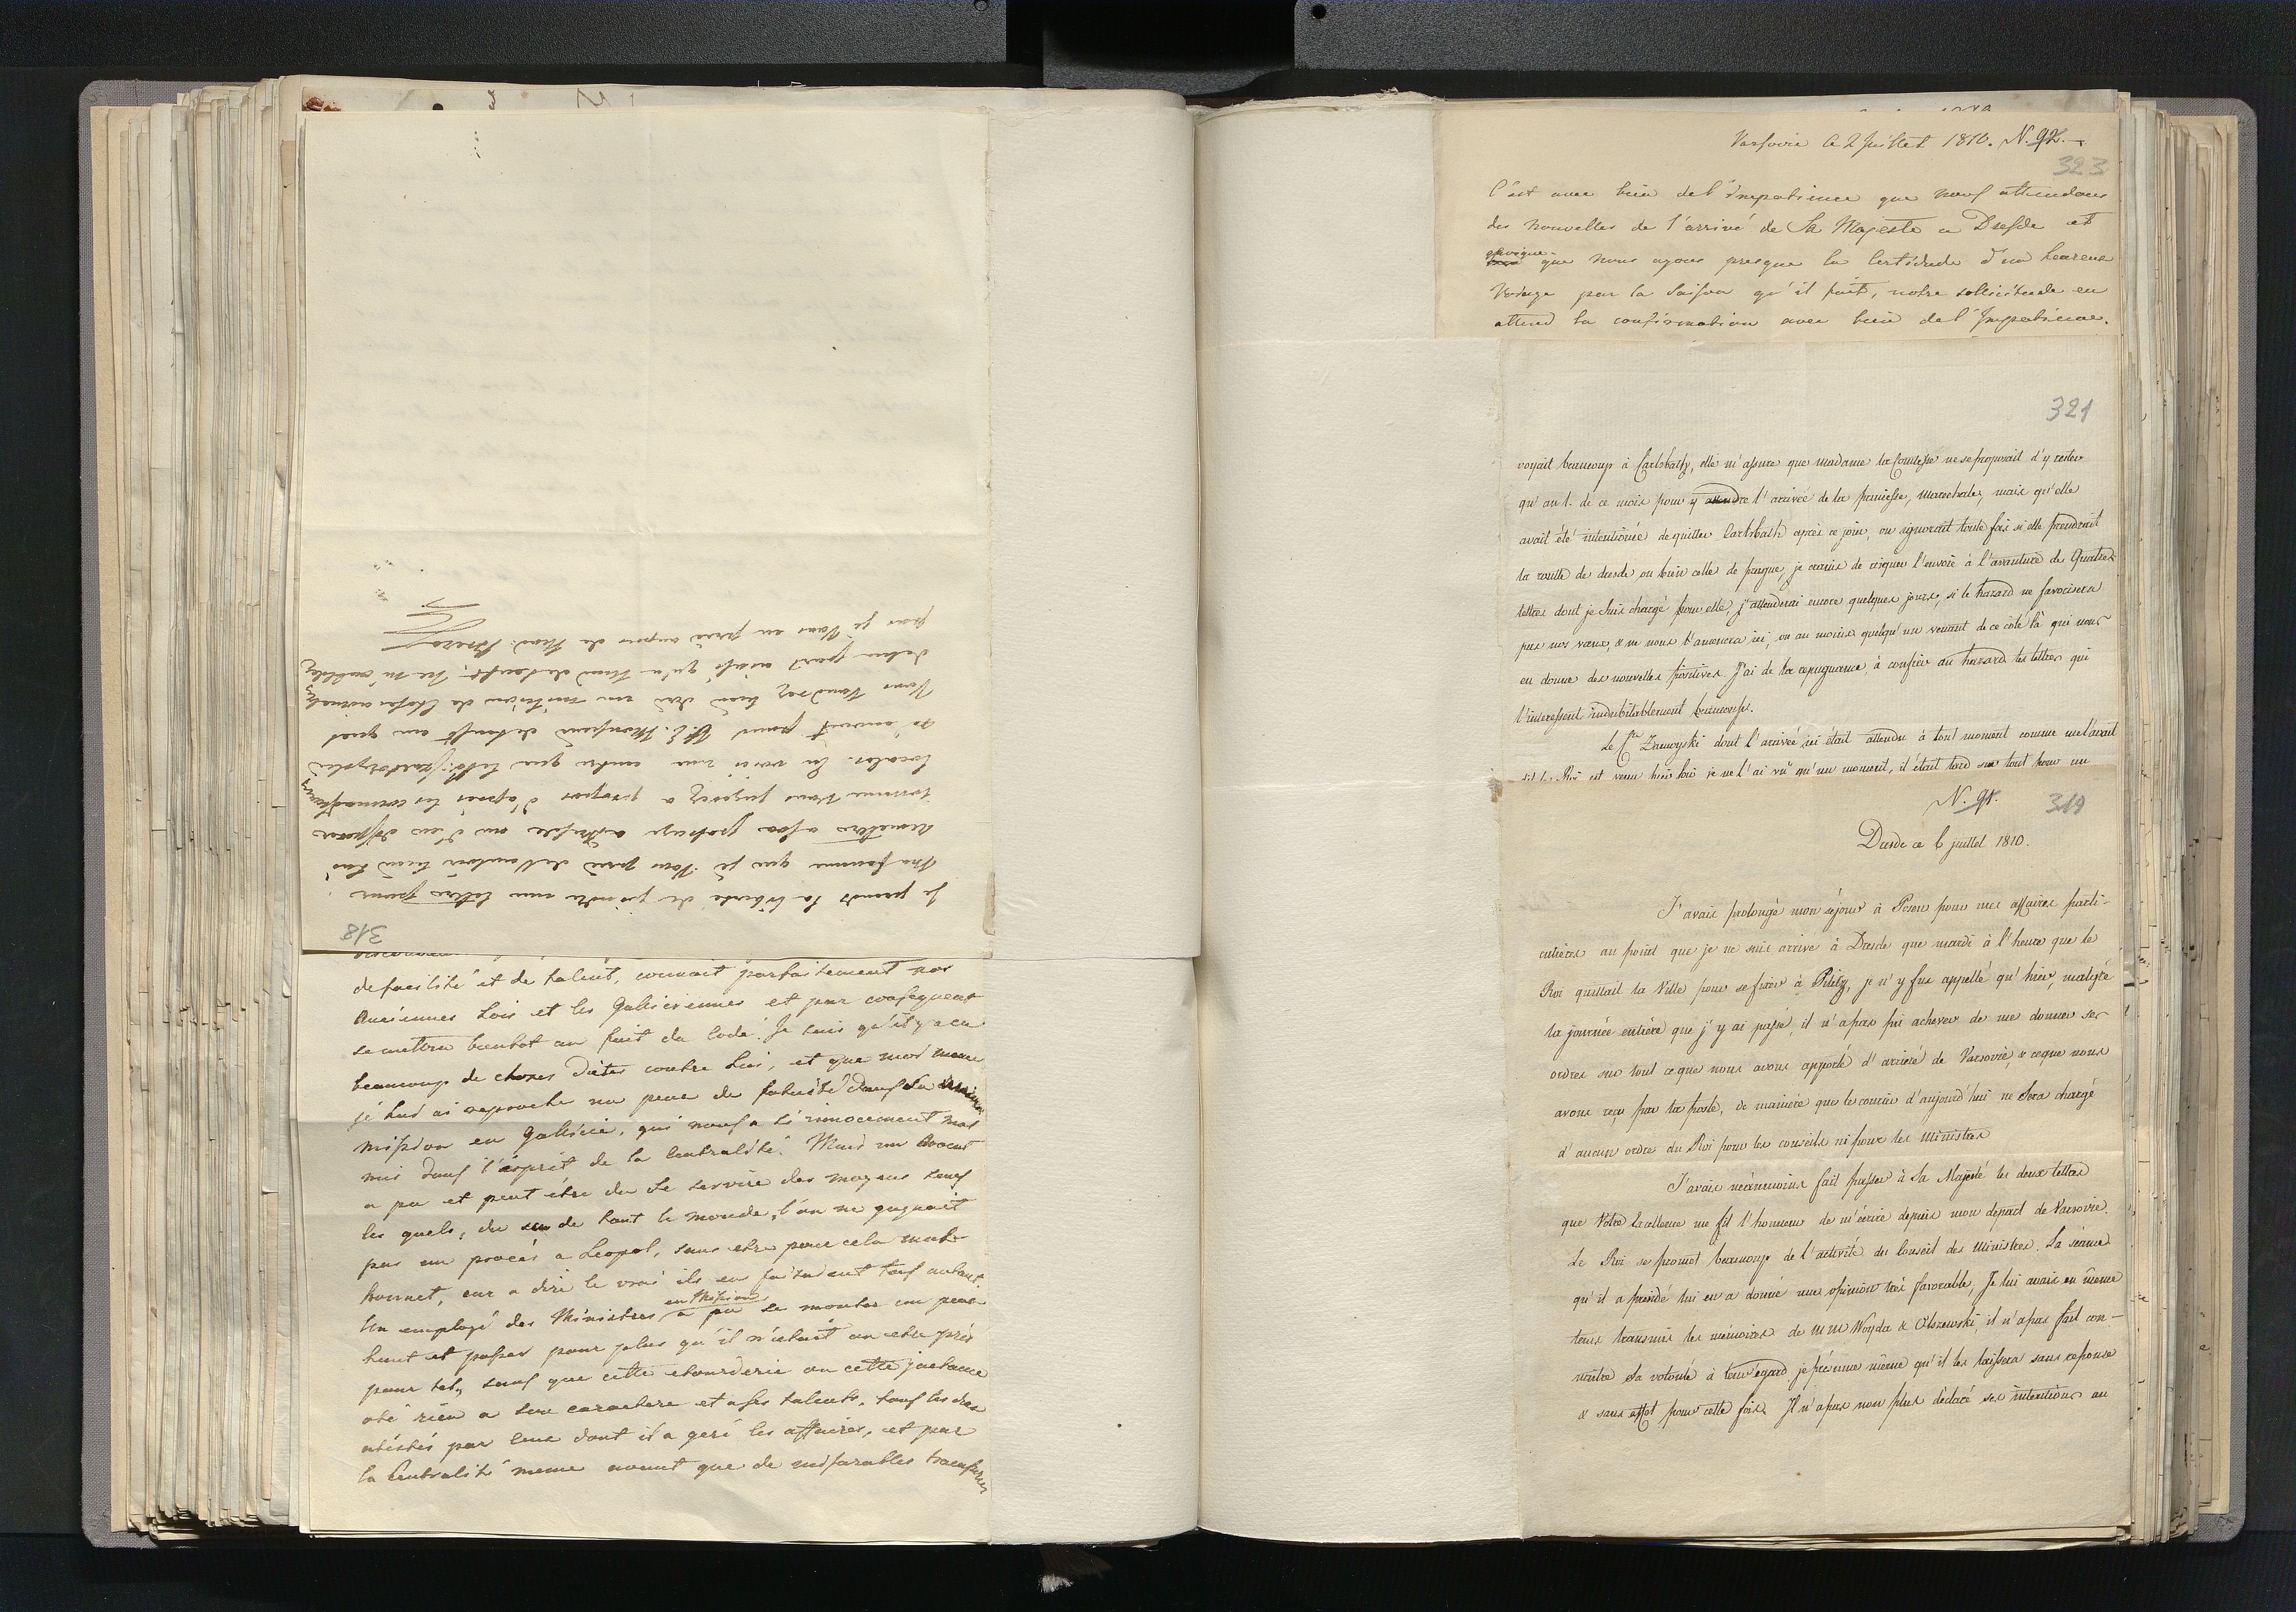 318
Je prends la liberté de joindre une lettre pour
ma femme que je Vous prie de vouloir bien lui
remettre a son passage a Dresde ou d'en disposer
comme Vous jugerez a propos d'apres les circonstances
locales. En voici une autre que
m'envoit pour S.E. Monsieur de Senft au quel
Vous voudrez bien dire un million de choses aimables
de ma part ainsi qu'a Mad. de Senft; ne m'oubliez
pas je Vous en prie aupres de Mad.
de facilité et de talent, connait parfaitement nos
anciennes Lois et les Galliciennes et par consequent
se mettra bientot au fait du Code. Je sais qu'il y a eu
beaucoup de choses dites contre Lui, et que moi meme
je Lui ai reproché un peu de fatuité dans Sa
mission en Gallicie, qui nous a si innocement mal
mis dans l'esprit de la Centralité. Mais un Avocat
a pu et peut être du se servire des moyens sans
les quels, du su de tout le monde, l'on ne gagnait
pas un procès a Leopol, sans etre pour cela mal-
honnet, car a dire le vrai ils en faisaient tous autant.
Un employé des Ministres en Mission a pu se monter un peu
haut et passer pour plus qu'il n'etait ou etre pris
pour tel, sans que cette etourderie ou cette jactance
ote rien a son caractere et a ses talents, tous les deux
attestés par ceux dont il a geré les affaires, et par
la Centralité meme avant que de miserables
Varsovie le 2 Juillet 1810. N. 92.
323
C'est avec bien de l'impatience que nous attendons
des nouvelles de l'arrivé de Sa Majesté a Dresde et
quoique que nous ayons presque la Certitude d'un heureux
Voyage par la Saison qu'il fait, notre sollicitude en
attend la confirmation avec bien de l'Impatience.
321
voyait beaucoup à Carlsbath, elle m'assure que madame la Comtesse ne se proposait d'y rester
qu'au 1. de ce mois pour y attendre l'arrivée de la princesse, marechale, mais qu'elle
avait été intentionée de quitter Carlsbath après ce jour, on ignorait toute fois si elle prendrait
la route de dresde ou bien celle de prague, je crains de risquer l'envoie à l'avanture de Quatres
lettres dont je suis chargé pour elle, j'attenderai encore quelques jours, si le hazard ne favorisera
pas nos vœux, & ne nous l'amenera ici, ou au moins quelqu'un venant de ce côté là qui nous
en donne des nouvelles positives. J'ai de la repugnance, à confier au hazard les lettres qui
l'interessent indubitablement beaucoup.
Le Cte Zamoyski dont l'arrivée ici était attendu à tout moment comme me l'avait
dit le Roi est venu hier soir je ne l'ai vu qu'un moment, il était tard sur tout pour un
N. 91. 319
Dresde ce 6 juillet 1810.
J'avais prolongé mon séjour à Posen pour mes affaires parti-
culières au point que je ne suis arrivé à Dresde que mardi à l'heure que le
Roi quittait la Ville pour se fixer à Pillitz, je n'y fus appellé qu'hier, malgré
la journée entière que j'y ai passé, il n'a pas pu achever de me donner ses
ordres sur tout ce que nous avons apporté d'arrieré de Varsovie, & ce que nous
avons reçu par la poste, de manière que le courier d'aujourd'hui ne sera chargé
d'aucun ordre du Roi pour les conseils ni pour les ministres
J'avais néanmoins fait passer à Sa Majesté les deux lettres
que Votre Excellence me fit l'honneur de m'écrire depuis mon départ de Varsovie.
Le Roi se promet beaucoup de l'activité du Conseil des ministres. La séance
qu'il a présidé lui en a donné une opinion très favorable, Je lui avais en même
tems transmis les mémoires de MM Woyda & Olszewski, il n'a pas fait con-
naitre sa volonté à leur égard, je présume même qu'il les laissera sans reponse
& sans effet pour cette fois. Il n'a pas non plus déclaré ses intentions au